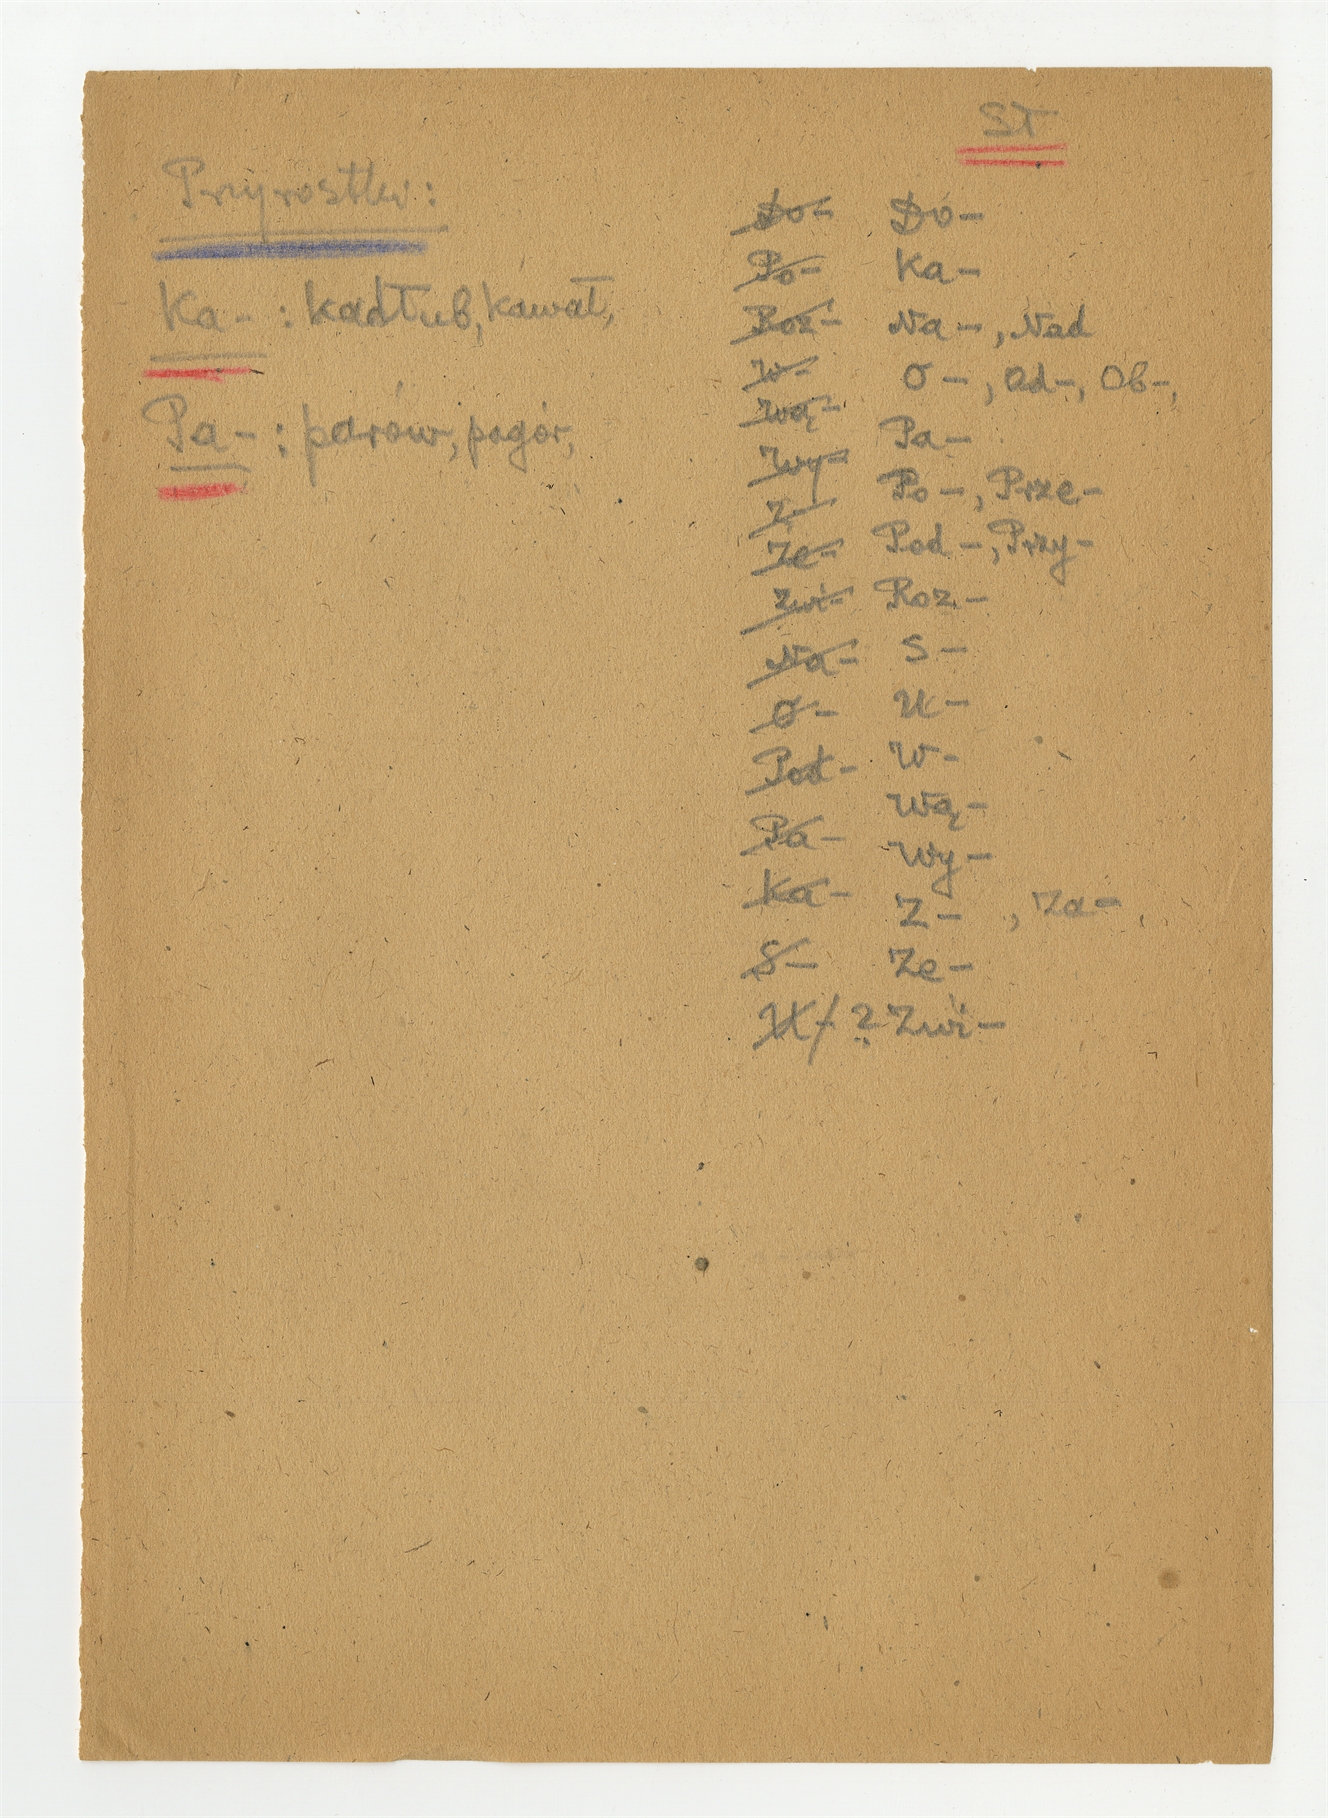 ST
Przyrostki:
Ka- : kadłub, kawał,
Pa- : parów, pagór,
Do-
Po-
Roz-
W-
Wą-
Wy-
Z-
Ze-
Zwi-
Na-
O-
Pod-
Pa-
Ka-
S-
U-
?
Do-
Ka-
Na-, Nad
O-, Od-, Ob-,
Pa-
Po-, Prze-
Pod-, Przy-
Roz-
S-
U-
W-
Wą-
Wy-
Z- , Za-,
Ze-
Zwi-